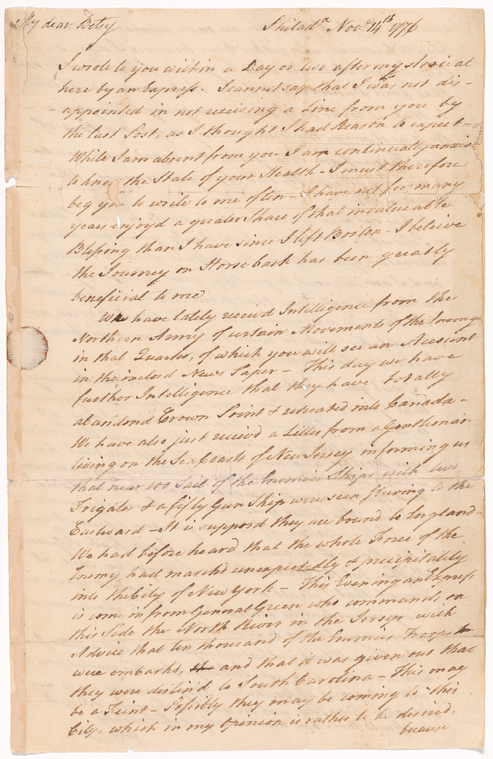 My dear Betsy
Philada Nov 14th 1776
I wrote to you within a Day or two after my Arrival
here by an Express. I cannot say that I was not dis-
-appointed in not receiving a Line from you by
the last Post, as I thought I had Reason to expect -
While I am absent from you I am continually
to know the State of your Health - I must therefore
beg you to write to me often - I have not for many
years enjoyd a greater Share of that invalueable
Blessing than I have since I left Boston - I believe
the Journey on Horseback has been greatly
beneficial to me
We have lately receivd Intelligence from the
Northern Army of certain Movements of the Enemy
in that Quarter, of which you will see an Account
in the inclosd News Paper - This day we have
further Intelligence that they have totally
abandond Crown Point & retreated into Canada -
We have also just receivd a Letter from a Gentleman
living on the Sea Coasts of New Jersey informing us
that near 100 Sail of the Enemies Ships with two
Frigates & a fifty Gun Ship were seen steering to the
Eastward - It is supposd they are bound to England -
We had before heard that the whole Force of the
Enemy had marchd unexpectedly & precipitately
into the City of New York - This Evening an Express
is come in from General Green who commands on
this Side the North River in the Jerseys with
Advice that ten thousand of the Enemies Troops
were embarkd, and that it was given out that
they were destind to South Carolina - This may
be a Feint - Possibly they may be coming to this
City, which in my Opinion is rather to be desired,
because